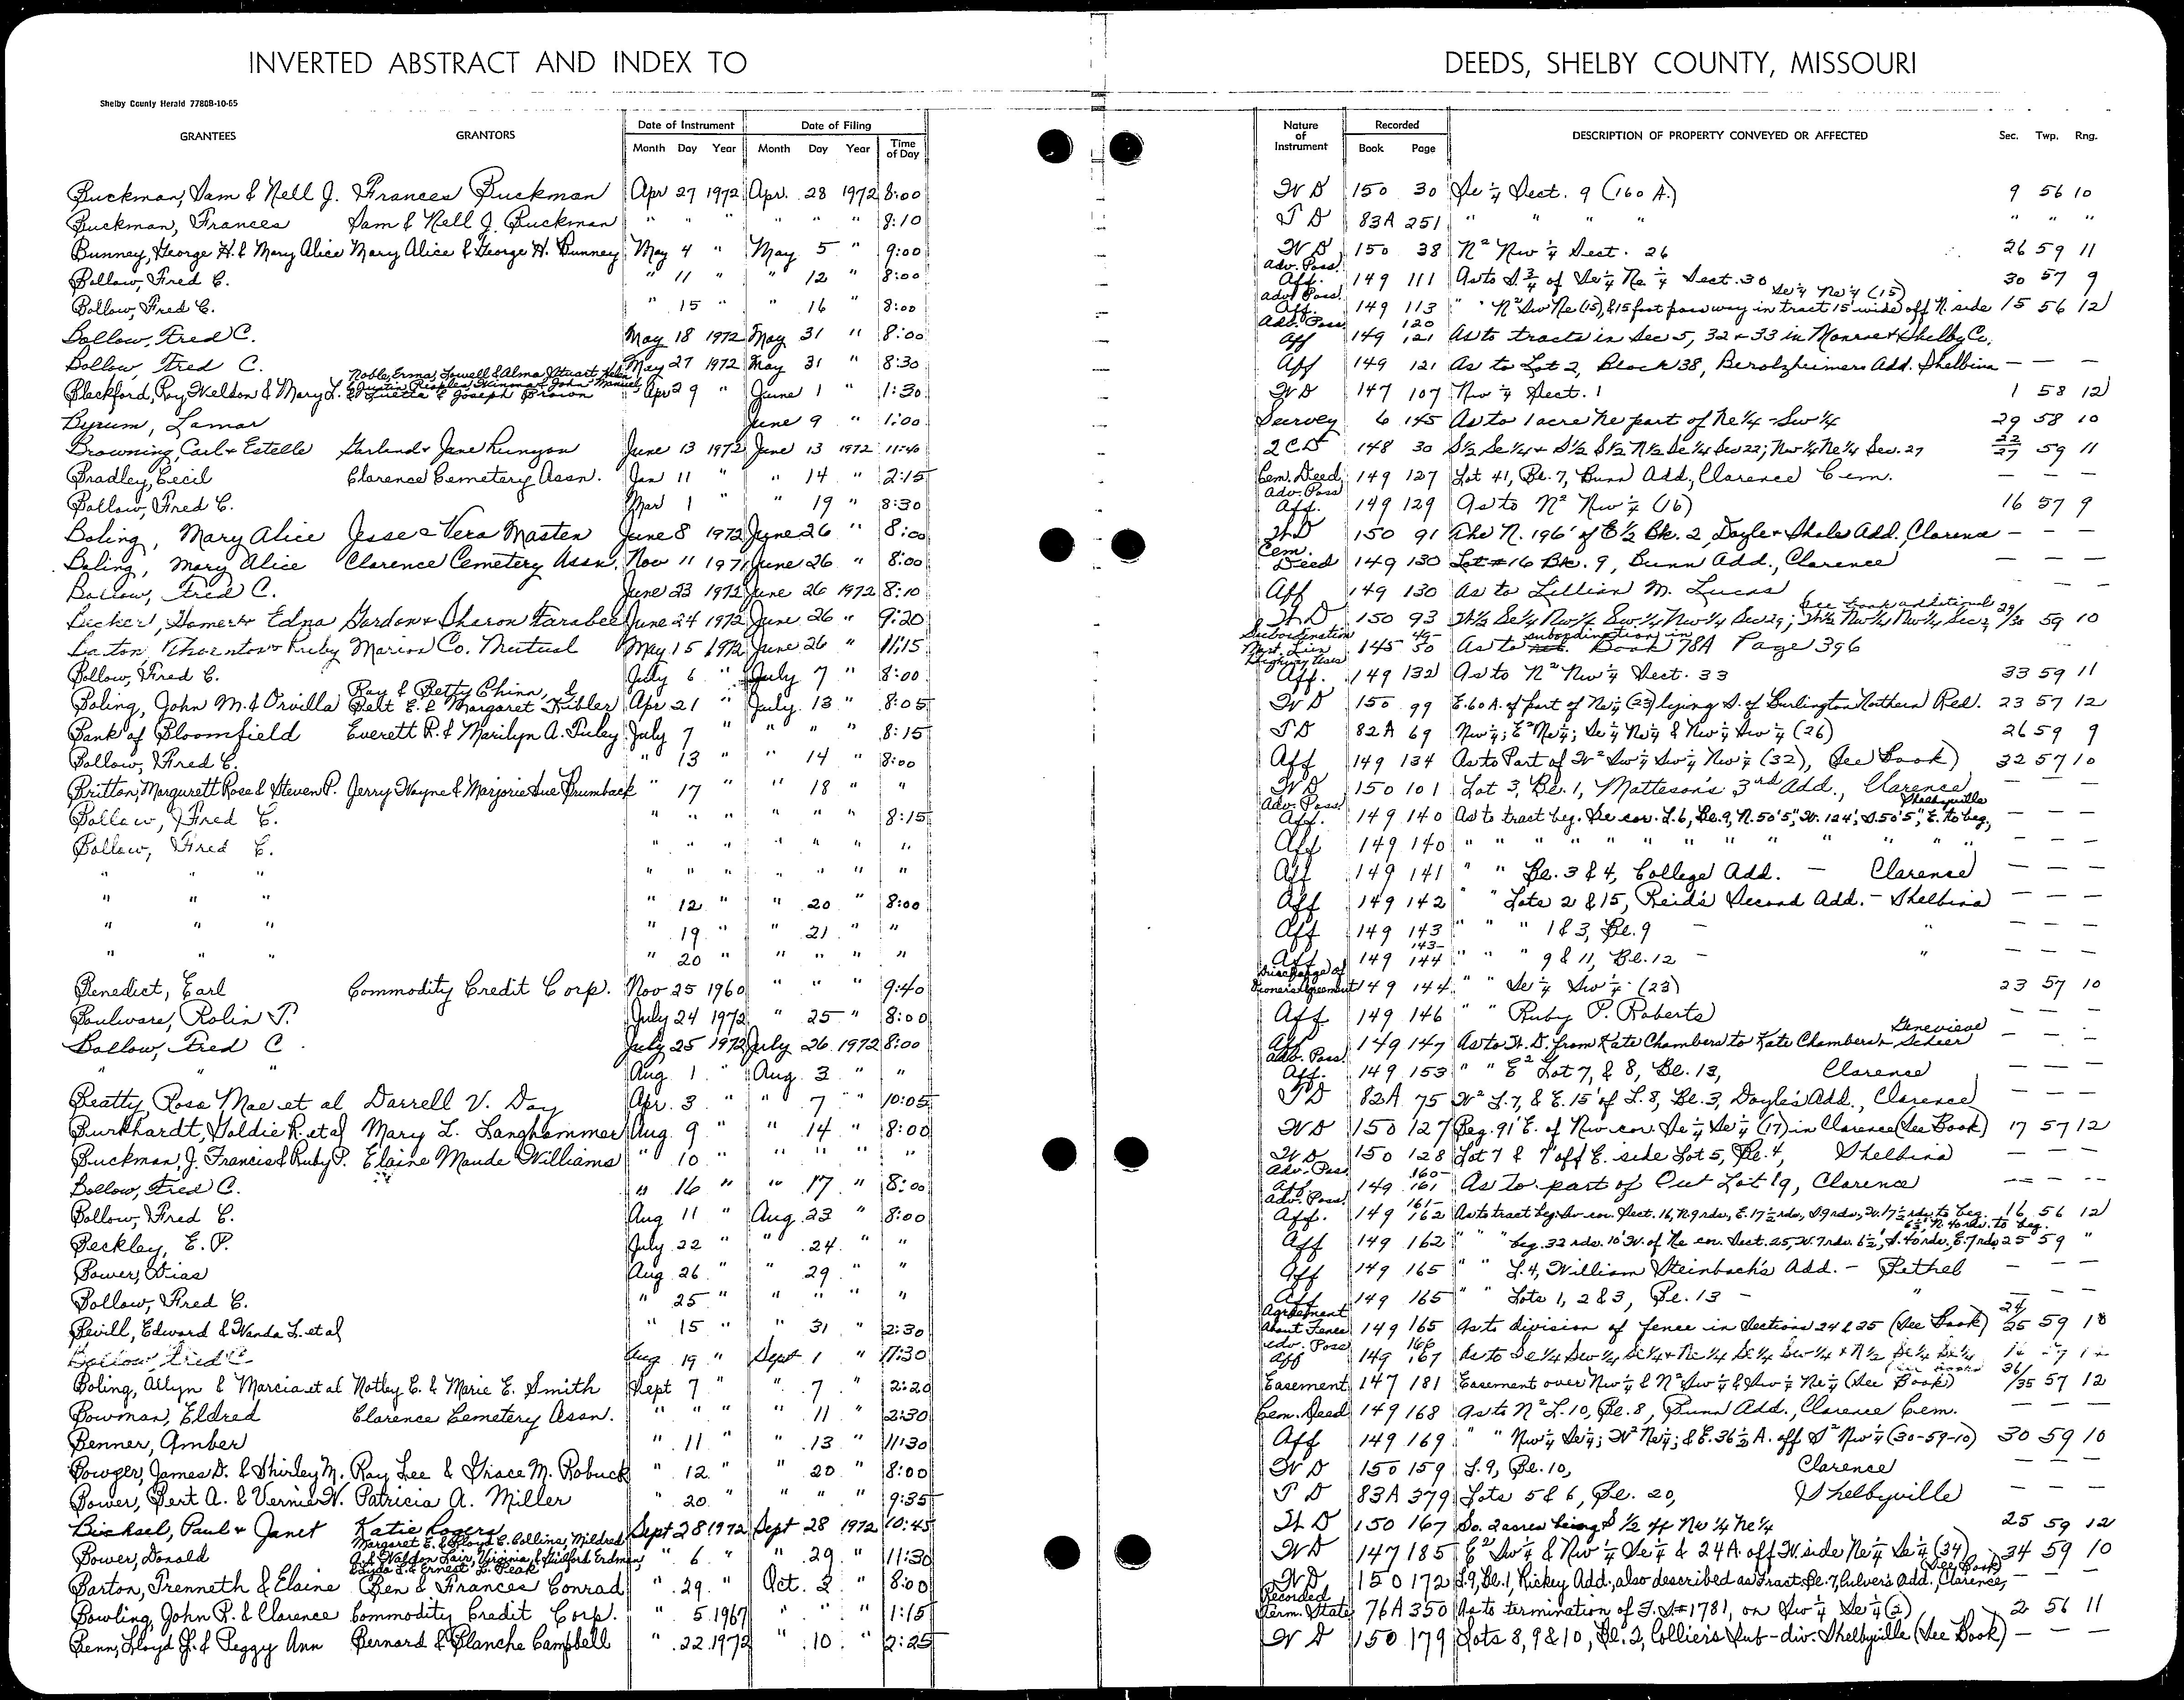 INVERTED ABSTRACT AND INDEX TO DEEDS, SHELBY COUNTY, MISSOURI
Shelby County Herald 7780B-10-65
GRANTEES GRANTORS Date of Instrument Date of Filing Time of Day Nature of Instrument Recorded DESCRIPTION OF PROPERTY CONVEYED OR AFFECTED Sec. Twp. Rng.
Month Day Year Month Day Year Book Page
Buckman, Sam & Nell J. Frances Buckman Apr 27 1972 Apr. 28 1972 8:00 W D 150 30 Se ¼ Sect. 9 (160 A.) 9 56 10
Buckman, Frances Sam & Nell J. Buckman " " " " " " 8:10 T D 83A 251 " " " " " " "
Bunney, George H. & Mary Alice Mary Alice & George H. Bunney May 4 " May 5 " 9:00 W D 150 38 N² Nw ¼ Sect. 26 26 59 11
Bollow, Fred C. " 11 " " 12 " 8:00 Adv. Poss. Aff. 149 111 As to S ¾ of Se ¼ Ne ¼ Sect. 30 30 57 9
Bollow, Fred C. " 15 " " 16 " 8:00 Adv. Poss. Aff. 149 113 " " N² Sw Ne (15), & 15 foot passway in tract 15' wide off N. side Se ¼ Ne ¼ (15) 15 56 12
Bollow, Fred C. May 18 1972 May 31 " 8:00 Adv. Poss. Aff 149 120 121 As to tracts in Sec 5, 32 + 33 in Monroe + Shelby Co.
Bollow, Fred C. May 27 1972 May 31 " 8:30 Aff 149 121 As to Lot 2, Block 38, Berolzheimers Add. Shelbina — — —
Blackford, Roy Weldon & Mary L. Noble, Erma, Lowell & Alma Stuart, Helen & Justin Peoples, Winona & John Manuel, & Luetta & Joseph Brown Apr 29 " June 1 " 1:30 W D 147 107 Nw ¼ Sect. 1 1 58 12
Byrum, Lamar June 9 " 1:00 Survey 6 145 As to 1 acre Ne part of Ne ¼ - Sw ¼ 29 58 10
Browning, Carl + Estelle Garland + Jane Runyon June 13 1972 June 13 1972 11:40 2 C D 148 30 S½ Se ¼ + S½ S½ N½ Se ¼ Sec 22; Nw ¼ Ne ¼ Sec. 27 22/27 59 11
Bradley, Cecil Clarence Cemetery Assn. Jan 11 " " 14 " 2:15 Cem. Deed 149 127 Lot 41, Bl. 7, Bunn Add., Clarence Cem. — — —
Bollow, Fred C. Mar 1 " " 19 " 8:30 Adv. Poss Aff. 149 129 As to N² Nw ¼ (16) 16 57 9
Boling, Mary Alice Jesse + Vera Masten June 8 1972 June 26 " 8:00 W D 150 91 The N. 196' of E ½ Bk. 2, Doyle + Shale Add. Clarence — — —
Boling, Mary Alice Clarence Cemetery Assn. Nov 11 1971 June 26 " 8:00 Cem. Deed 149 130 Lot # 16 Bk. 9, Bunn Add., Clarence — — —
Bollow, Fred C. June 23 1972 June 26 1972 8:10 Aff 149 130 As to Lillian M. Lucas — — —
Homer + Edna Gordon + Sharon Farabee June 24 1972 June 26 " 9:20 W D 150 93 W½ Se ¼ Nw ¼ Sw ¼ Nw ¼ Sec 29; 29/30 59 10
Thornton + Ruby Marion Co. Mutual May 15 1972 June 26 " 11:15 Subordination 145 49-50 As to subordination in Book 78A Page 396
Bollow, Fred C. July 6 " July 7 " 8:00 Aff. 149 132 As to N² Nw ¼ Sect. 33 33 59 11
Boling, John M. & Orvilla Ray & Betty Chinn, & Belt E. & Margaret Kibler Apr 21 " July 13 " 8:05 W D 150 99 E. 60 A. of part of Ne ¼ (23) lying S. of Burlington Northern Rd. 23 57 12
Bank of Bloomfield Everett R. & Marilyn A. Tuley July 7 " " " " 8:15 T D 82A 69 Nw ¼; E² Ne ¼; Se ¼ Ne ¼ & Nw ¼ Sw ¼ (26) 26 59 9
Bollow, Fred C. " 13 " " 14 " 8:00 Aff 149 134 As to Part of W² Sw ¼ Sw ¼ Nw ¼ (32), (See Book) 32 57 10
Britton, Margurett Rose & Steven P. Jerry Wayne & Marjorie Sue Brumback " 17 " " 18 " " W D 150 101 Lot 3, Bl. 1, Matteson's 3rd Add., Clarence — — —
Bollow, Fred C. " " " " " " 8:15 Adv. Poss. Aff. 149 140 As to tract beg. Se cor. L. 6, Bl. 9, N. 50' 5", W. 124', S. 50' 5", E. to beg. Shelbyville — — —
Bollow, Fred C. " " " " " " " Aff 149 140 " " " " " " " " " — — —
" " " " " " " " " " Aff 149 141 " " Bl. 3 & 4, College Add. — Clarence — — —
" " " " 12 " " 20 " 8:00 Aff 149 142 " " Lots 2 & 15, Reid's Second Add. — Shelbina — — —
" " " " 19 " " 21 " " Aff 149 143 " " " 1 & 3, Bl. 9 — " — — —
" " " " 20 " " " " " Aff 149 143-144 " " " 9 & 11, Bl. 12 — " — — —
Benedict, Earl Commodity Credit Corp. Nov 25 1960 " " " 9:40 Discharge of Owners Agreement 149 144 " " Se ¼ Sw ¼ (23) 23 57 10
Boulware, Rolin T. July 24 1972 " 25 " 8:00 Aff 149 146 " " Ruby P. Roberts — — —
Bollow, Fred C July 25 1972 July 26 1972 8:00 Aff 149 147 As to W. D. from Kate Chambers to Kate Chambers + Genevieve Scheer — — —
" " " Aug 1 " Aug. 3 " " Adv. Poss. Aff. 149 153 " " E² Lot 7, & 8, Bl. 13, Clarence — — —
Beatty, Rosa Mae et al Darrell V. Day Apr. 3 " " 7 " 10:05 T D 82A 75 W² L. 7, & E. 15' of L. 8, Bl. 3, Doyle's Add., Clarence — — —
Burkhardt, Goldie R. et al Mary L. Langhammer Aug 9 " " 14 " 8:00 W D 150 127 Beg. 91' E. of Nw cor. Se ¼ Se ¼ (17) in Clarence (See Book) 17 57 12
Buckman, J. Francis & Ruby P. Elaine Maude Williams " 10 " " " " " W D 150 128 Lot 7 & 7' off E. side Lot 5, Bl. 4, Shelbina — — —
Bollow, Fred C. " 16 " " 17 " 8:00 Adv. Poss. Aff 149 160-161 As to part of Out Lot 19, Clarence — — —
Bollow, Fred C. Aug 11 " Aug. 23 " 8:00 Adv. Poss. Aff. 149 161-162 As to tract beg. Sw cor. Sect. 16, N. 9 rds., E. 17½ rds., S 9 rds., W. 17½ rds. to beg. 16 56 12
Beckley, E. P. July 22 " " 24 " " Aff 149 162 " " beg. 32 rds. 10' W. of Ne cor. Sect. 25, W. 7 rds. 6½', S. 40 rds., E. 7 rds. 6½', N. 40 rds. to beg. 25 59 "
Bower, Dias Aug 26 " " 29 " " Aff 149 165 " " L. 4, William Steinbach's Add. — Bethel — — —
Bollow, Fred C. " 25 " " " " " Aff 149 165 " " Lots 1, 2 & 3, Bl. 13 — " — — —
Bevill, Edward & Wanda L. et al " 15 " " 31 " 2:30 Agreement About Fence 149 165 As to division of fence in Sections 24 & 25 (See Book) 24/25 59 10
Bollow Fred C Aug 19 " Sept 1 " 11:30 Adv. Poss Aff 149 166 167 As to Se ¼ Sw ¼ Se ¼ + Ne ¼ Se ¼ Sw ¼ + N ½ Se ¼ Se ¼
Boling, Allyn & Marcia et al Notley C. & Marie E. Smith Sept 7 " " 7 " 2:20 Easement 147 181 Easement over Nw ¼ & N² Sw ¼ & Sw ¼ Ne ¼ (See Book) 36/35 57 12
Bowman, Eldred Clarence Cemetery Assn. " " " " 11 " 2:30 Cem. Deed 149 168 As to N² L. 10, Bl. 8, Bunn Add., Clarence Cem. — — —
Benner, Amber " 11 " " 13 " 11:30 Aff 149 169 " " Nw ¼ Se ¼; W² Ne ¼; & E. 36½ A. off S² Nw ¼ (30-59-10) 30 59 10
Bowger, James D. & Shirley M. Ray Lee & Grace M. Robuck " 12 " " 20 " 8:00 W D 150 159 L. 9, Bl. 10, Clarence — — —
Bower, Bert A. & Vernie W. Patricia A. Miller " 20 " " " " 9:35 T D 83A 379 Lots 5 & 6, Bl. 20, Shelbyville — — —
Bicksel, Paul + Janet Katie Rogers Sept 28 1972 Sept 28 1972 10:45 W D 150 167 So. 2 acres being S ½ of Nw ¼ Ne ¼ 25 59 12
Bower, Donald Margaret E. & Floyd E. Collins, Mildred A. & Waldon Lair, Virginia & Guilford Erdman, & Lyda L. & Ernest L. Peak " 6 " " 29 " 11:30 W D 147 185 E² Sw ¼ & Nw ¼ Se ¼ & 24 A. off W. side Ne ¼ Se ¼ (34) (See Book) 34 59 10
Barton, Trenneth & Elaine Ben & Frances Conrad " 29 " Oct. 2 " 8:00 W D 150 172 L. 9, Bl. 1, Rickey Add., also described as Tract Bl. 7, Culver's Add., Clarence, — — —
Bowling, John R. & Clarence Commodity Credit Corp. " 5 1967 " " " 1:15 Recorded Term. State 76A 350 As to termination of F. S # 1781, on Sw ¼ Se ¼ (2) 2 56 11
Benn, Lloyd J. & Peggy Ann Bernard & Blanche Campbell " 22 1972 " 10 " 2:25 W D 150 179 Lots 8, 9 & 10, Bl. 2, Collier's Sub-div. Shelbyville (See Book) — — —